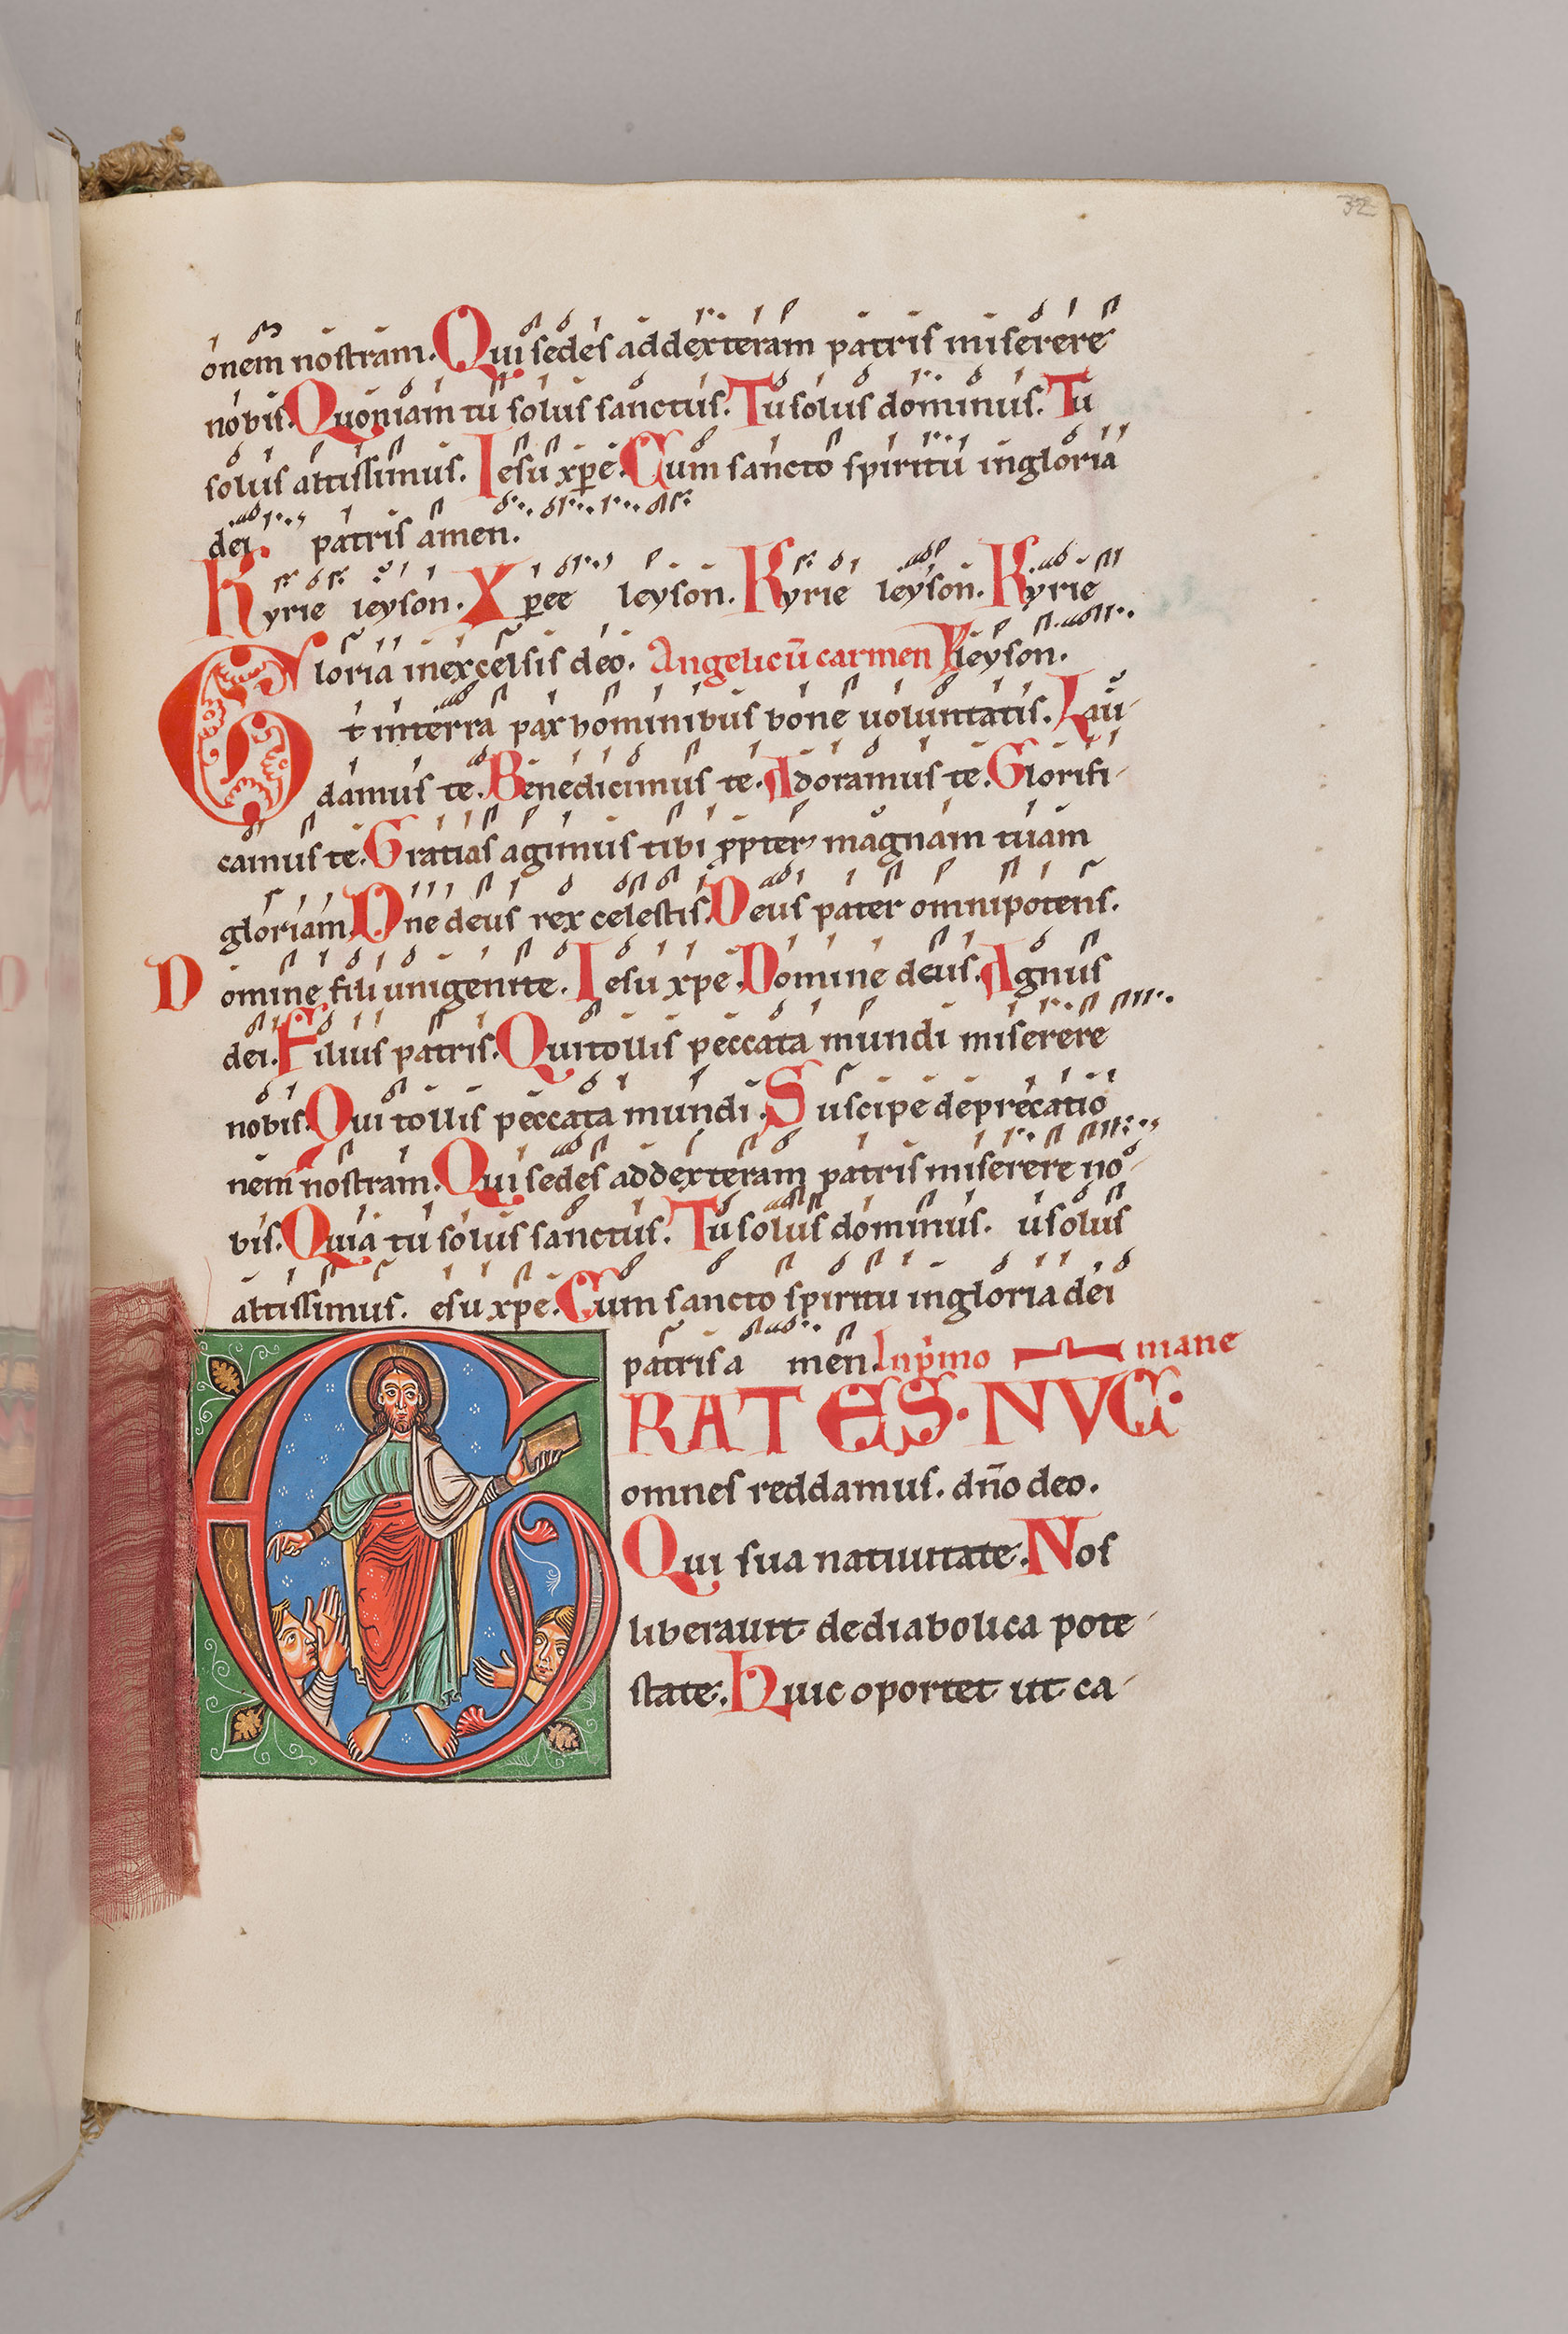 32
onem nostram. Qui sedes ad dexteram patris miserere
nobis. Quoniam tu solus sanctus. Tu solus dominus. Tu
solus altissimus. Iesu xpe. Cum sancto spiritu in gloria
dei patris amen.
Kyrie leyson. Xpee leyson. Kyrie leyson. Kyrie
Gloria in excelsis deo. Angelicū carmen leyson.
t in terra pax hominibus bone uoluntatis. Lau-
damus te. Benedicimus te. Adoramus te. Glorifi-
camus te. Gratias agimus tibi propter magnam tuam
gloriam. Dne deus rex celestis. Deus pater omnipotens.
Domine fili unigenite. Iesu xpe. Domine deus. Agnus
dei. Filius patris. Qui tollis peccata mundi miserere
nobis. Qui tollis peccata mundi. Suscipe deprecatio
nem nostram. Qui sedes ad dexteram patris miserere no-
bis. Quia tu solus sanctus. Tu solus dominus. u solus
altissimus. esu xpe. Cum sancto spiritu in gloria dei
patris a men. In pimo mane
GRATES. NVC.
omnes reddamus. dño deo.
Qui sua natiuitate. Nos
liberauit de diabolica pote-
state. Huic oportet ut ca-